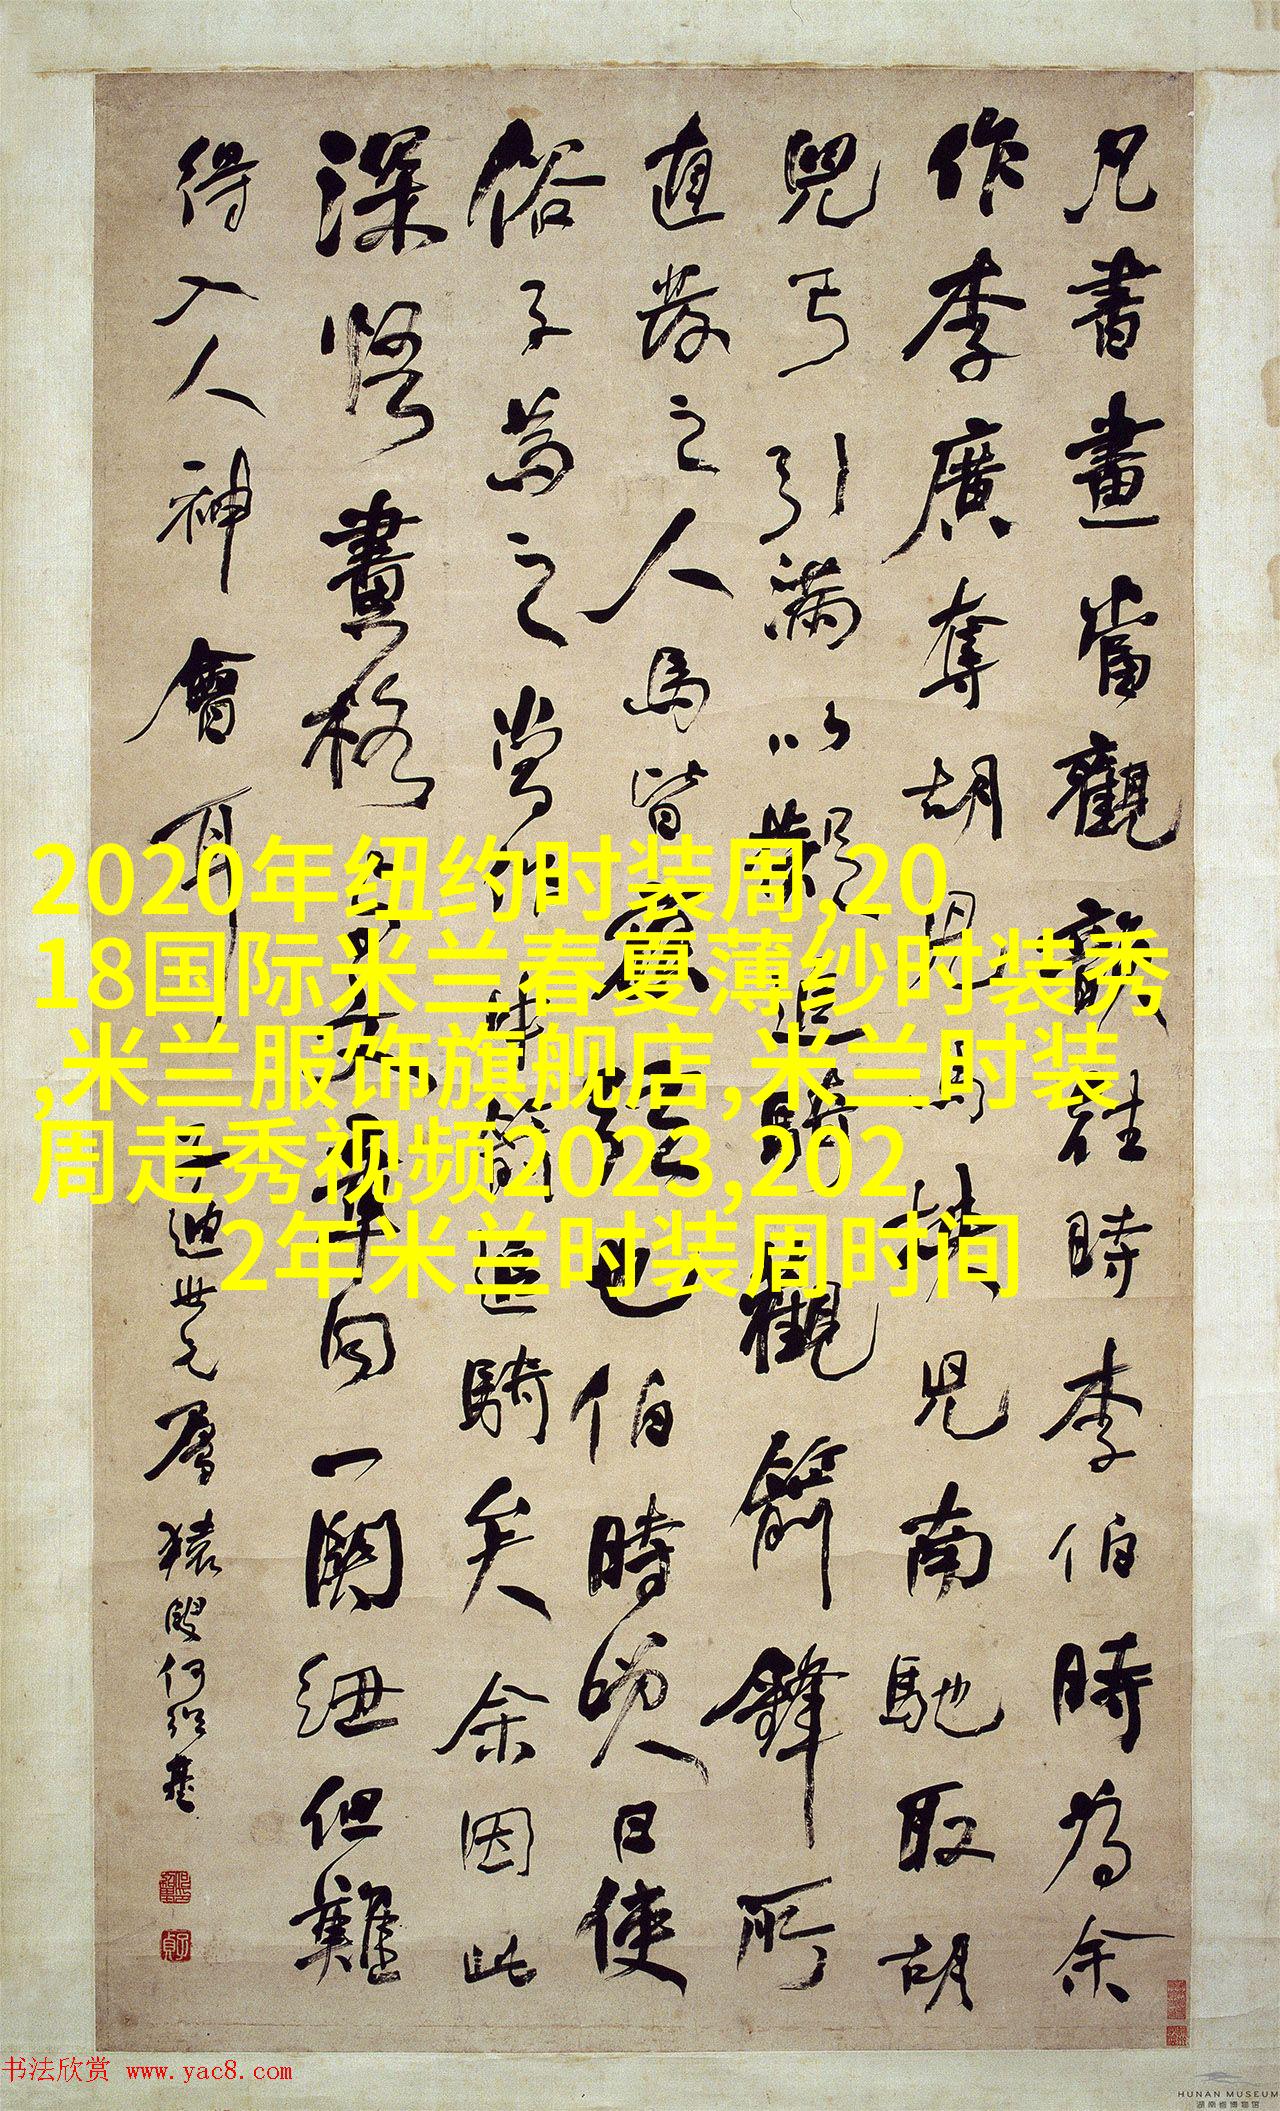 凡書畫當觀韻往時李伯時為余
作李廣奪胡兒馬挾兒南馳取胡
兒弓引滿以擬追騎觀箭鋒所
直發之人馬皆應弦也伯時笑曰使
俗子為之當作中箭追騎矣余因此
深悟畫格此與文章同一關紐但難
得入人神會耳
迪世兄屬 猿叟何紹基
2020年纽约时装周,20
18国际米兰春夏薄纱时装秀
,米兰服饰旗舰店,米兰时装
周走秀视频2023,202
2年米兰时装周时间
书法欣赏 www.yac8.com
HUNAN MUSEUM
湖南省博物馆